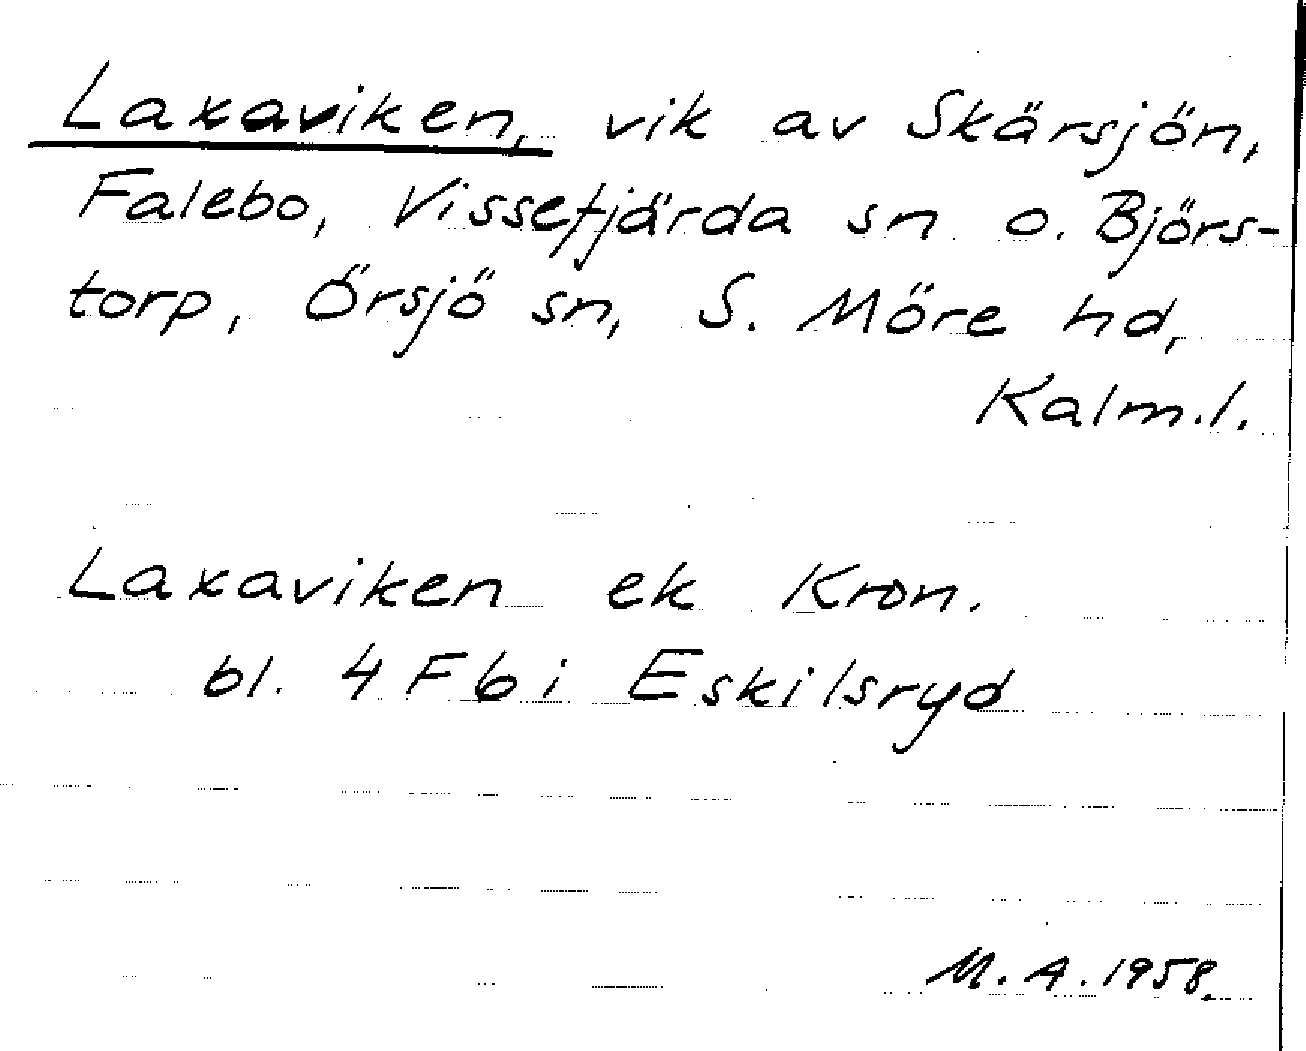 Laxaviken, vik av Skärsjön,
Falebo, Vissefjärda sn o. Björs-
torp, Örsjö sn, S. Möre hd,
Kalm.l.
Laxaviken ek Kron.
bl. 4 F 6 i Eskilsryd
M. A. 1958.